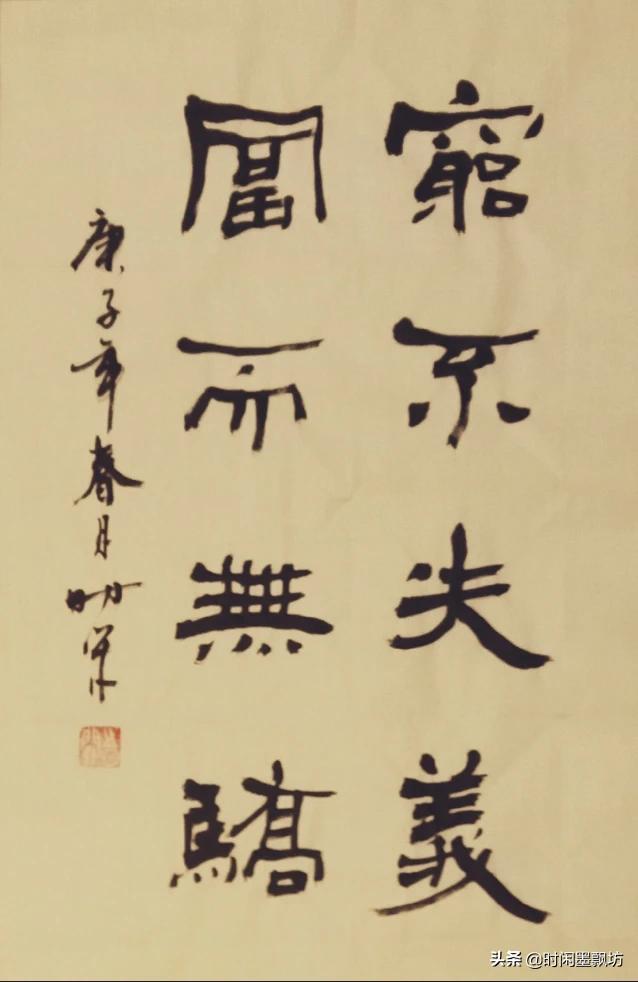 窮不失義
富而無驕
庚子年春月
头条 @时闲墨飘坊